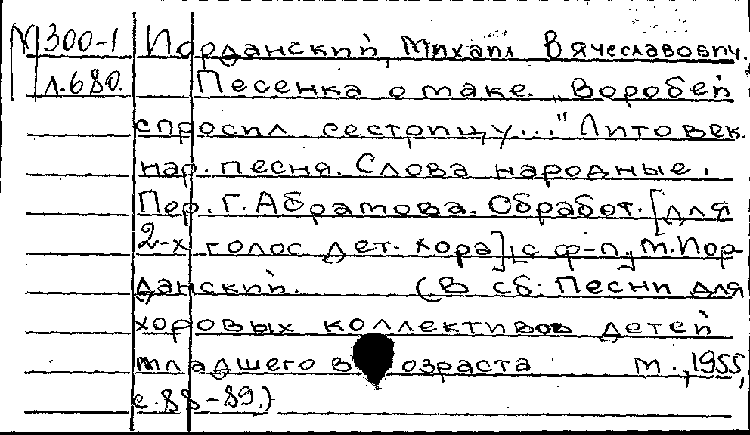 М300-1 Иорданский, Михаил Вячеславович.
л.680. Песенка о маке. „Воробей
спросил сестрицу..." Литовск.
нар. песня. Слова народные.
Пер. Г. Абрамова. Обработ. [для
2-х голос. дет. хора] [с ф-п.] М. Иор-
данский. (В сб: Песни для
хоровых коллективов детей
младшего возраста М., 1955,
с. 88-89.)